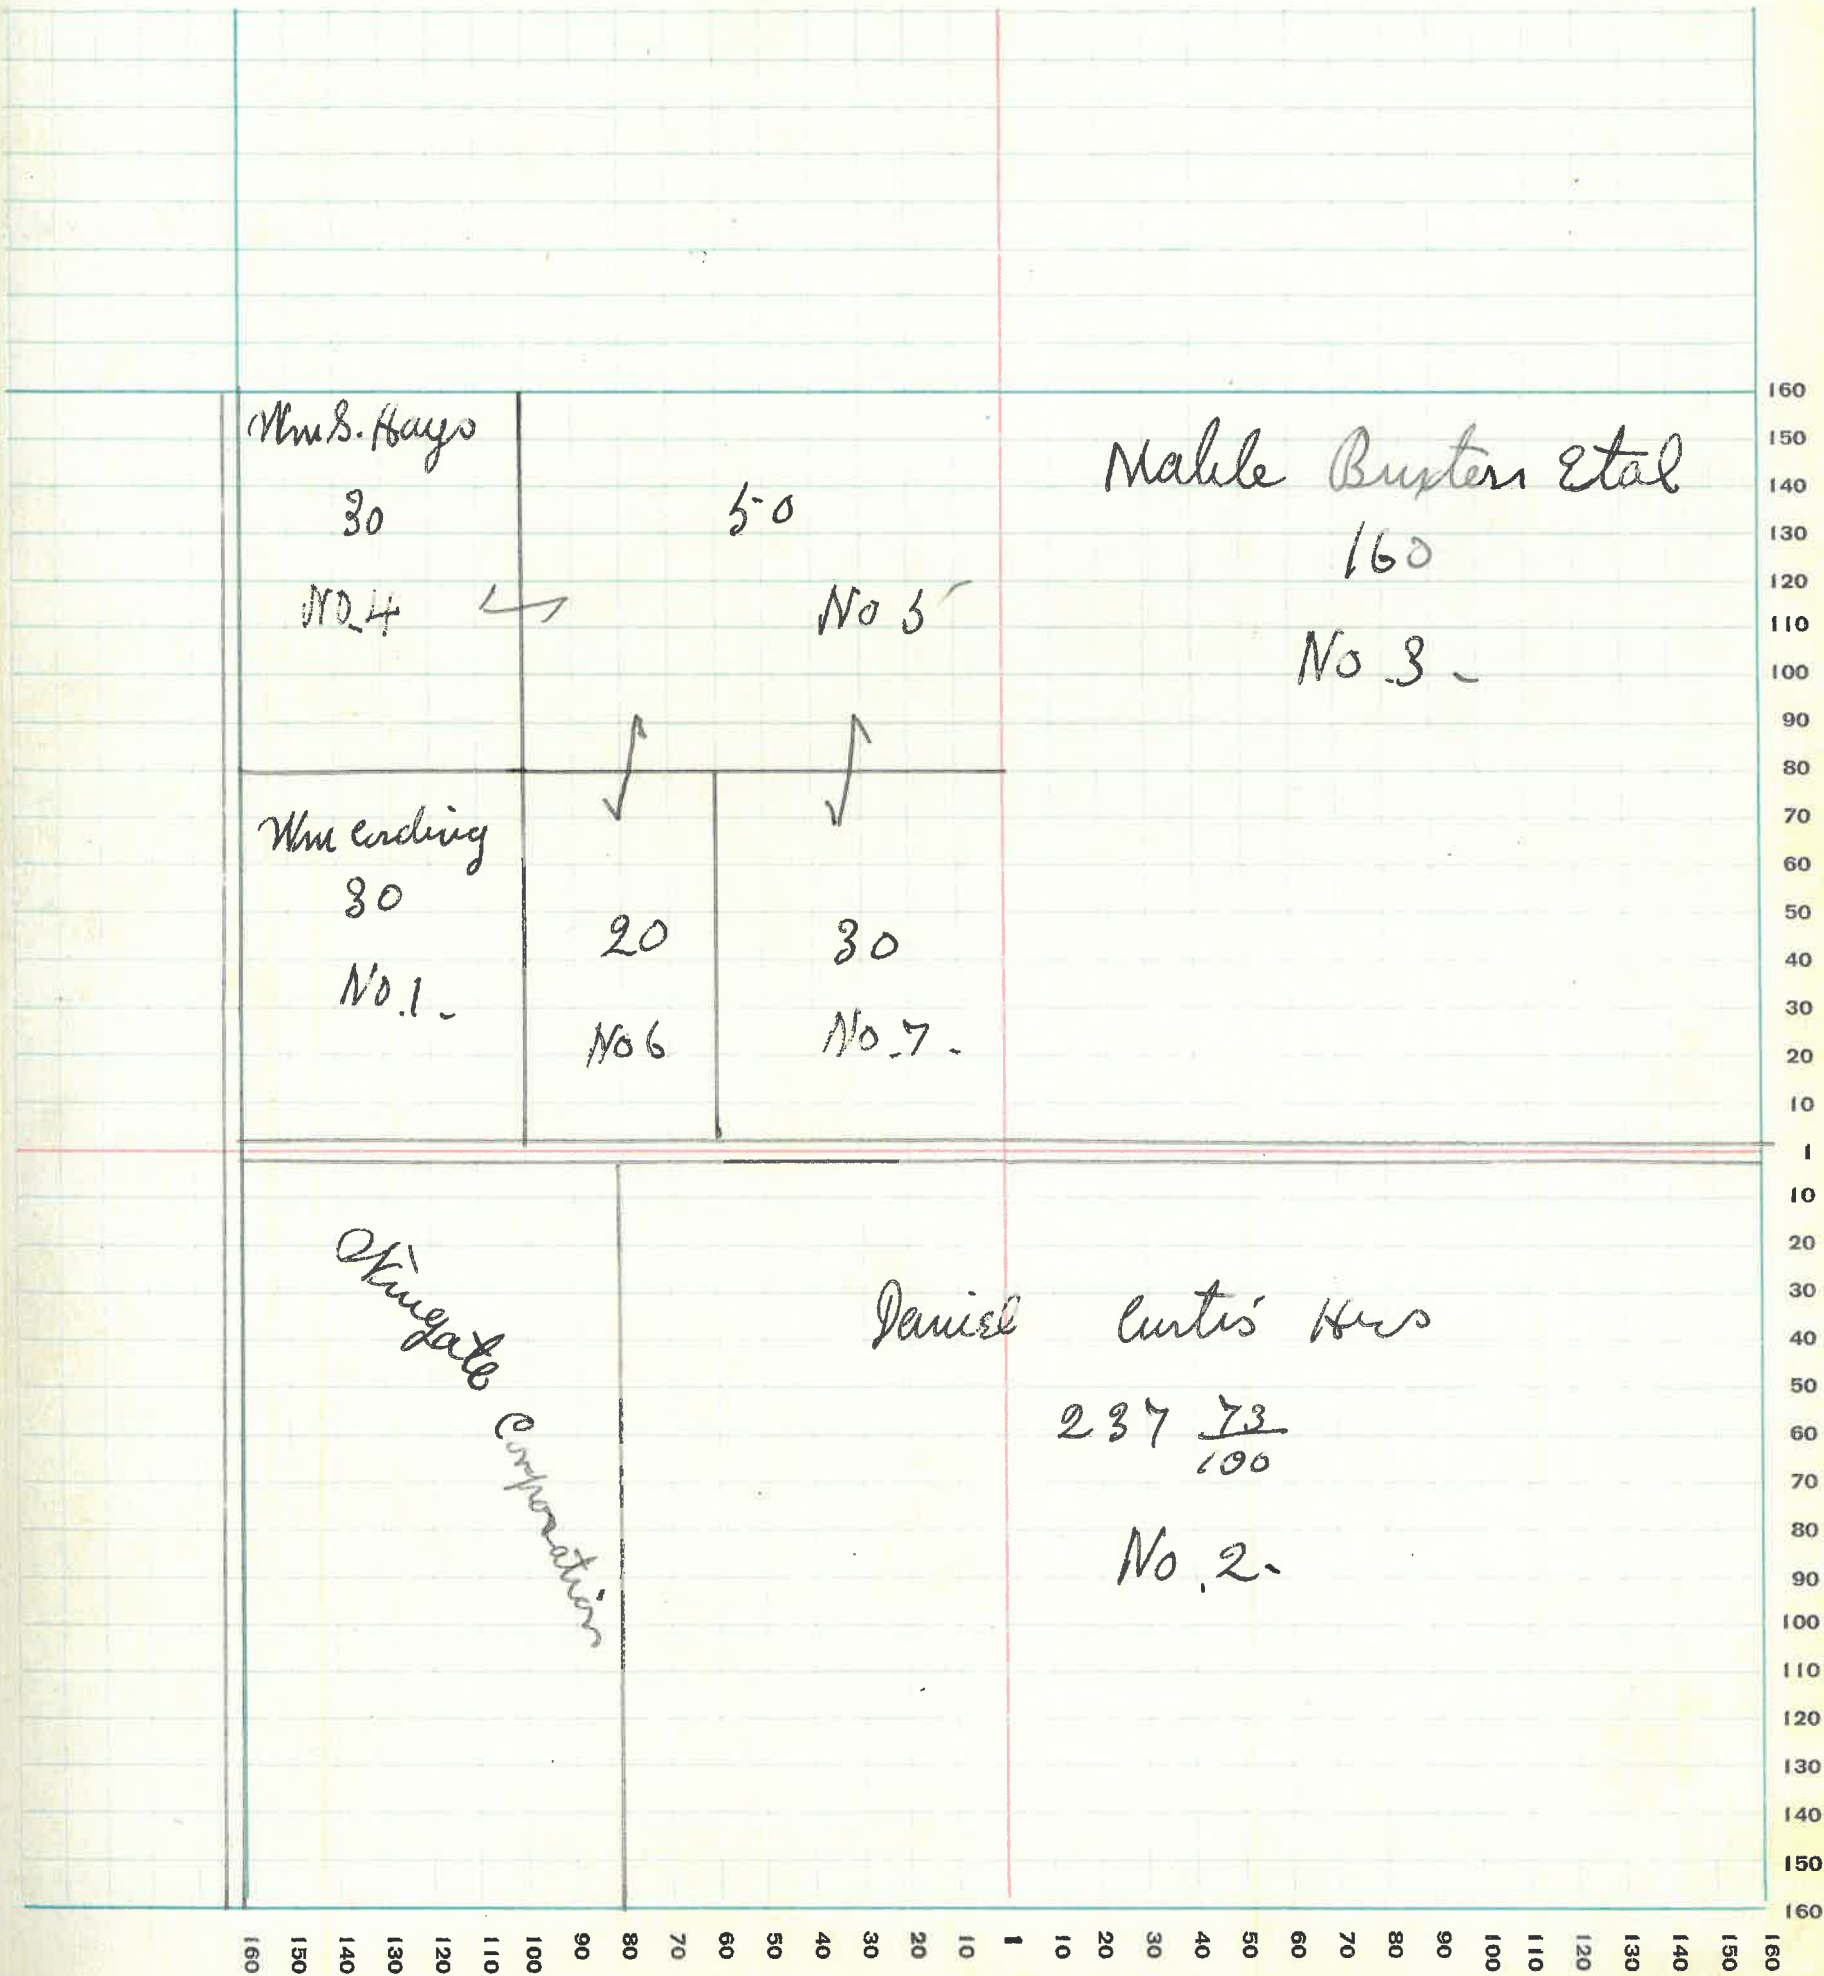 Wm S. Hays
30
No. 4
50
No 5
Mable Buxton Etal
160
No. 3 -
Wm Cording
30
No. 1. -
20
No 6
30
No. 7. -
Wingate Corporation
Daniel Curtis Hrs
237 73/100
No. 2. -
160
150
140
130
120
110
100
90
80
70
60
50
40
30
20
10
1
10
20
30
40
50
60
70
80
90
100
110
120
130
140
150
160
160 150 140 130 120 110 100 90 80 70 60 50 40 30 20 10 1 10 20 30 40 50 60 70 80 90 100 110 120 130 140 150 160